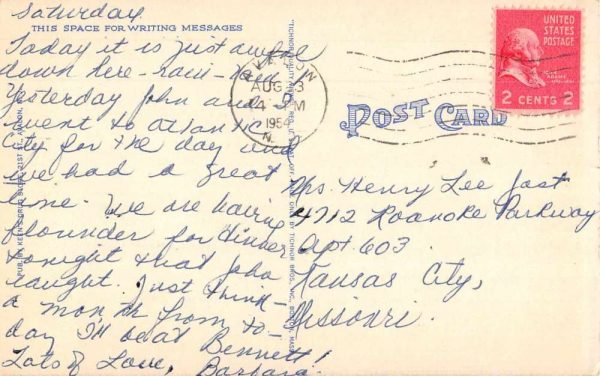 Saturday
THIS SPACE FOR WRITING MESSAGES
Today it is just awful
down here - rain - rain!
Yesterday John and I
went to Atlantic
City for the day and
we had a great
time. We are having
flounder for dinner
tonight that John
caught. Just think -
a month from to-
day I'll be at Bennett!
Lots of Love, Barbara
AVALON
AUG
4 PM
1954
N.
UNITED
STATES
POSTAGE
ADAMS
2 CENTS 2
POST CARD
Mrs. Henry Lee Jost
4712 Roanoke Parkway
Apt. 603
Kansas City,
Missouri.